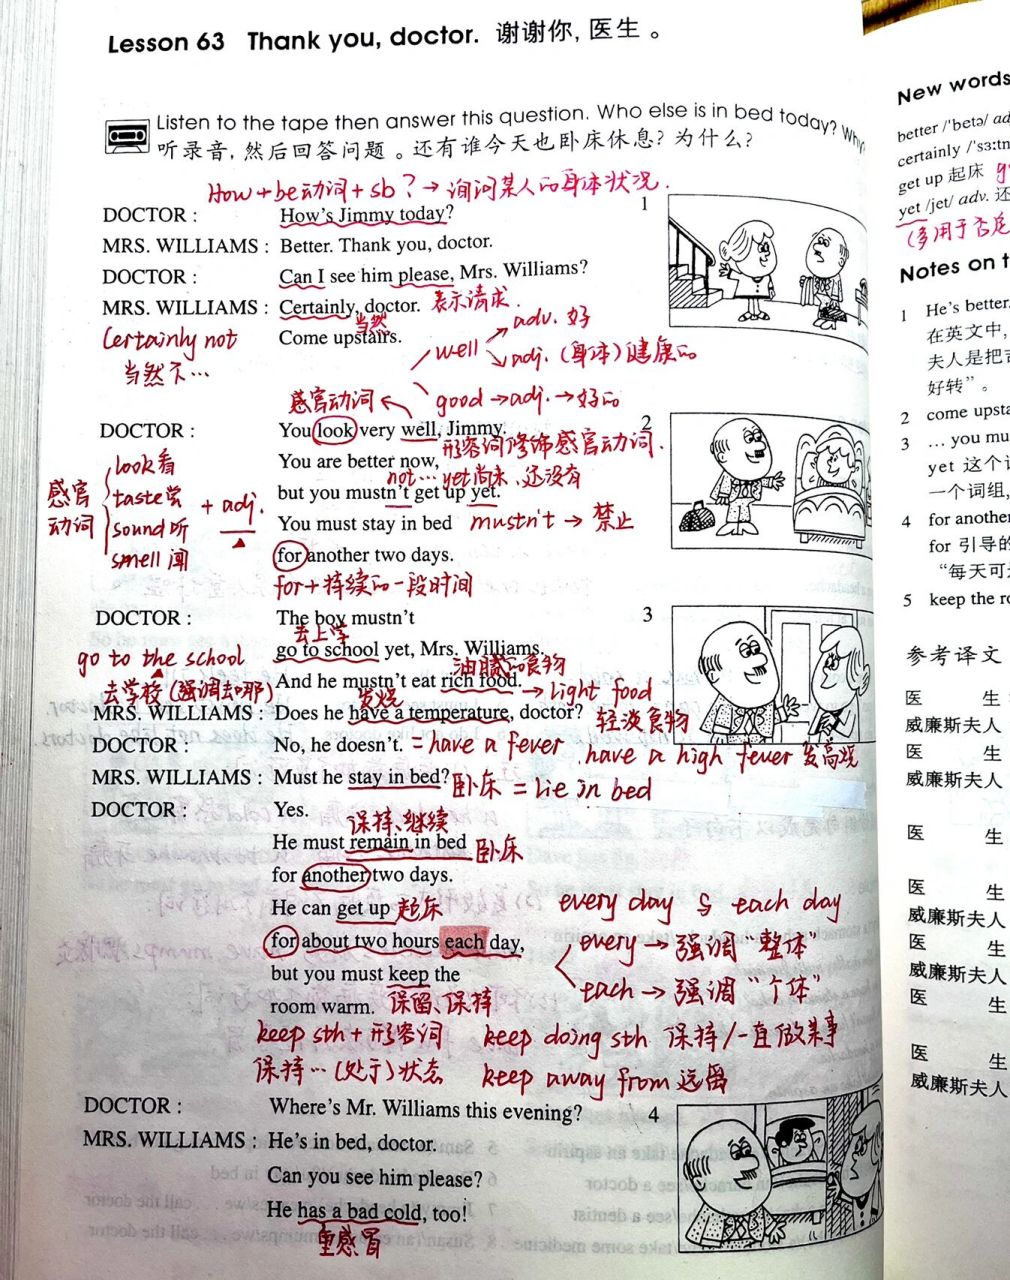 Lesson 63 Thank you, doctor. 谢谢你,医生。
Listen to the tape then answer this question. Who else is in bed today? Why
听录音,然后回答问题。还有谁今天也卧床休息?为什么?
How+be动词+sb?→询问某人的身体状况.
DOCTOR: How's Jimmy today?
MRS. WILLIAMS: Better. Thank you, doctor.
DOCTOR: Can I see him please, Mrs. Williams?
MRS. WILLIAMS: Certainly, doctor. 表示请求.
当然
Come upstairs.
Certainly not
当然不…
well
adv. 好
adj. (身体)健康的
感官动词
good→adj.→好的
1
DOCTOR: You look very well, Jimmy.
形容词修饰感官动词.
You are better now,
not…yet尚未、还没有
but you mustn't get up yet.
You must stay in bed mustn't → 禁止
for another two days.
for+持续的一段时间
感官动词
look看
taste尝
sound听
smell闻
+ adj.
2
DOCTOR: The boy mustn't
去上学
go to school yet, Mrs. Williams.
go to the school
去学校(强调去哪)
油腻的食物
And he mustn't eat rich food. → light food
轻淡食物
发烧
MRS. WILLIAMS: Does he have a temperature, doctor?
DOCTOR: No, he doesn't. = have a fever have a high fever 发高烧
MRS. WILLIAMS: Must he stay in bed? 卧床 = lie in bed
DOCTOR: Yes.
保持、继续
He must remain in bed 卧床
for another two days.
He can get up 起床
for about two hours each day,
but you must keep the
room warm. 保留、保持
every day 与 each day
every → 强调“整体”
each → 强调“个体”
keep sth + 形容词
保持…(处于)状态
keep doing sth 保持/一直做某事
keep away from 远离
3
DOCTOR: Where's Mr. Williams this evening?
MRS. WILLIAMS: He's in bed, doctor.
Can you see him please?
He has a bad cold, too!
重感冒
4
New words
better /'betə/ ad
certainly /'sɜːtn
get up 起床
yet /jet/ adv. 还
(多用于否定
Notes on t
1 He's better.
在英文中,
好转”。
2 come upsta
3 … you mu
yet 这个
一个词组,
4 for another
for 引导的
“每天可
5 keep the ro
参考译文
医 生
威廉斯夫人
医 生
威廉斯夫人
医 生
医 生
威廉斯夫人
医 生
威廉斯夫人
医 生
医 生
威廉斯夫人